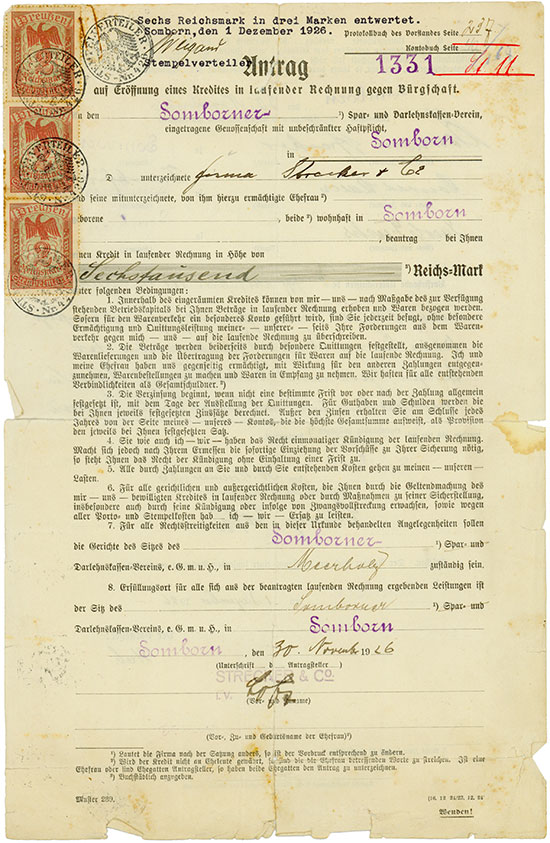 Sechs Reichsmark in drei Marken entwertet.
Somborn, den 1 Dezember 1926.
Weigand
Stempelverteiler
Protokollbuch des Vorstandes Seite 237
Kontobuch Seite
Antrag
1331
auf Eröffnung eines Kredites in laufender Rechnung gegen Bürgschaft.
Somborner ¹) Spar- und Darlehnskassen-Verein,
eingetragene Genossenschaft mit unbeschränkter Haftpflicht,
in Somborn
D unterzeichnete firma Strecker & Co
und seine mitunterzeichnete, von ihm hierzu ermächtigte Ehefrau ²)
geborene , beide ²) wohnhaft in Somborn
, beantrag bei Ihnen
einen Kredit in laufender Rechnung in Höhe von
Sechstausend ³) Reichs-Mark
unter folgenden Bedingungen:
1. Innerhalb des eingeräumten Kredites können von mir — uns — nach Maßgabe des zur Verfügung
stehenden Betriebskapitals bei Ihnen Beträge in laufender Rechnung erhoben und Waren bezogen werden.
Sofern für den Warenverkehr ein besonderes Konto geführt wird, sind Sie jederzeit befugt, ohne besondere
Ermächtigung und Quittungsleistung meiner — unserer — seits Ihre Forderungen aus dem Waren-
verkehr gegen mich — uns — auf die laufende Rechnung zu überschreiben.
2. Die Beträge werden beiderseits durch besondere Quittungen festgestellt, ausgenommen die
Warenlieferungen und die Übertragung der Forderungen für Waren auf die laufende Rechnung. Ich und
meine Ehefrau haben uns gegenseitig ermächtigt, mit Wirkung für den anderen Zahlungen entgegen-
zunehmen, Warenbestellungen zu machen und Waren in Empfang zu nehmen. Wir haften für alle entstehenden
Verbindlichkeiten als Gesamtschuldner. ²)
3. Die Verzinsung beginnt, wenn nicht eine bestimmte Frist vor oder nach der Zahlung allgemein
festgesetzt ist, mit dem Tage der Ausstellung der Quittungen. Für Guthaben und Schulden werden die
bei Ihnen jeweils festgesetzten Zinssätze berechnet. Außer den Zinsen erhalten Sie am Schlusse jedes
Jahres von der Seite meines — unseres — Kontos, die die höchste Gesamtsumme aufweist, als Provision
den jeweils bei Ihnen festgesetzten Satz.
4. Sie wie auch ich — wir — haben das Recht einmonatiger Kündigung der laufenden Rechnung.
Macht sich jedoch nach Ihrem Ermessen die sofortige Einziehung der Vorschüsse zu Ihrer Sicherung nötig,
so steht Ihnen das Recht der Kündigung ohne Einhaltung einer Frist zu.
5. Alle durch Zahlungen an Sie und durch Sie entstehenden Kosten gehen zu meinen — unseren —
Lasten.
6. Für alle gerichtlichen und außergerichtlichen Kosten, die Ihnen durch die Geltendmachung des
mir — uns — bewilligten Kredites in laufender Rechnung oder durch Maßnahmen zu seiner Sicherstellung,
insbesondere auch durch seine Kündigung oder infolge von Zwangsvollstreckung erwachsen, sowie wegen
aller Porto- und Stempelkosten hab ich — wir — Ersatz zu leisten.
7. Für alle Rechtsstreitigkeiten aus den in dieser Urkunde behandelten Angelegenheiten sollen
die Gerichte des Sitzes des Somborner ¹) Spar- und
Darlehnskassen-Vereins, e. G. m. u. H., in Meerholz zuständig sein.
8. Erfüllungsort für alle sich aus der beantragten laufenden Rechnung ergebenden Leistungen ist
der Sitz des Somborner ¹) Spar- und
Darlehnskassen-Vereins, e. G. m. u. H., in Somborn
Somborn, den 30. November 1926
(Unterschrift d Antragsteller )
STRECKER & Co.
I.V.
(Vor- und Zuname)
(Vor-, Zu- und Geburtsname der Ehefrau) ²)
¹) Lautet die Firma nach der Satzung anders, so ist der Vordruck entsprechend zu ändern.
²) Wird der Kredit nicht an Eheleute gewährt, so sind die die Ehefrau betreffenden Worte zu streichen. Ist eine
Ehefrau oder sind Ehegatten Antragsteller, so haben beide Ehegatten den Antrag zu unterzeichnen.
³) Buchstäblich anzugeben.
Muster 289.
Wenden!
Preußen
Preußen
Preußen